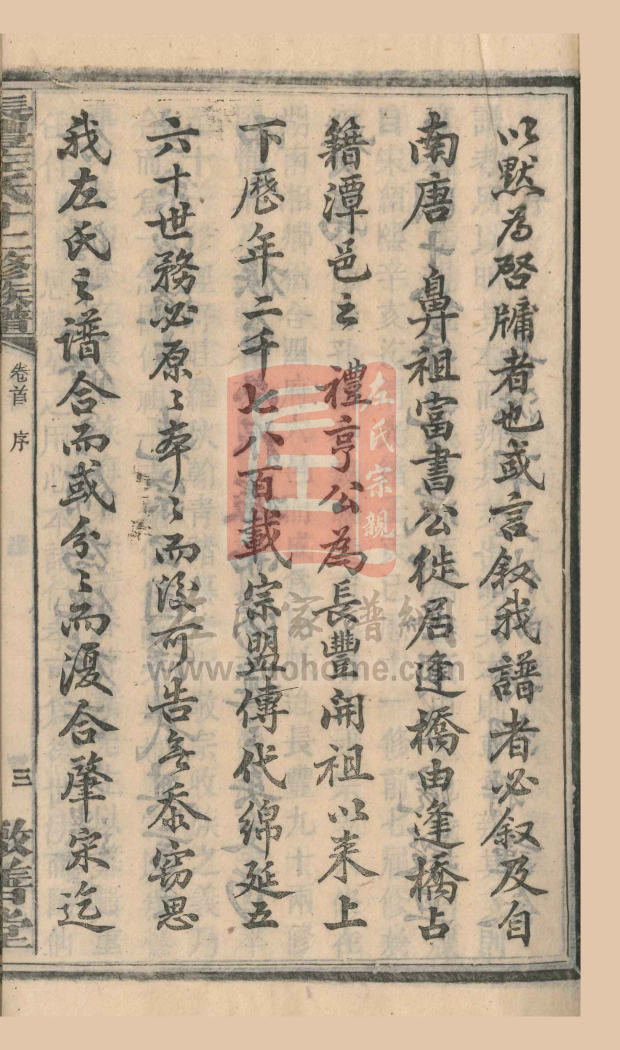 以默为啓牖者也或言叙我譜者必叙及自
南唐 鼻祖富書公徙居逢橋由逢橋占
籍潭邑之 禮亨公為長豐開祖以来上
下歷年二千七八百載宗盟傳代綿延五
六十世務必原〻本〻而後可告無忝竊思
我左氏之譜合而或分〻而復合肇宋迄
左氏十二修族譜
卷首 序
三
敦善堂
左氏宗親
左氏家譜網
www.zuohome.com